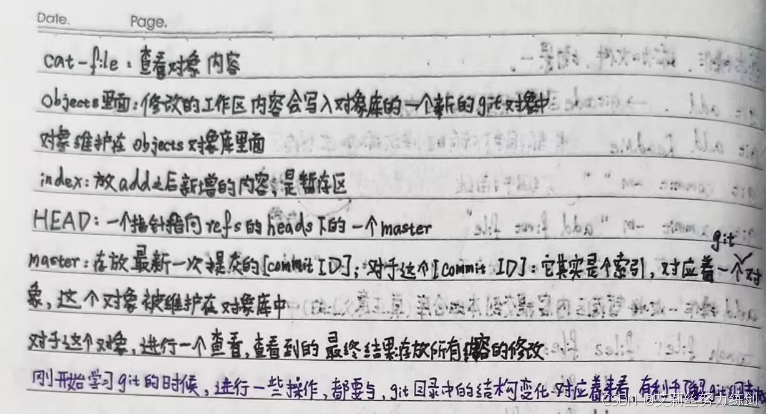 Date.  Page.
cat-file：查看对象内容
Objects里面：修改的工作区内容会写入对象库的一个新的git对象中
对象维护在objects对象库里面
index：放add之后新增的内容，是暂存区
HEAD：一个指针指向refs的heads下的一个master
git
master：存放最新一次提交的[commit ID]；对于这个[commit ID]：它其实是个索引，对应着一个对
象，这个对象被维护在对象库中
对于这个对象，进行一个查看，查看到的最终结果存放所有内容的修改
刚开始学习git的时候，进行一些操作，都要与.git目录中的结构变化对应着来看，有利于了解git
CSDN @艾莉丝努力练剑